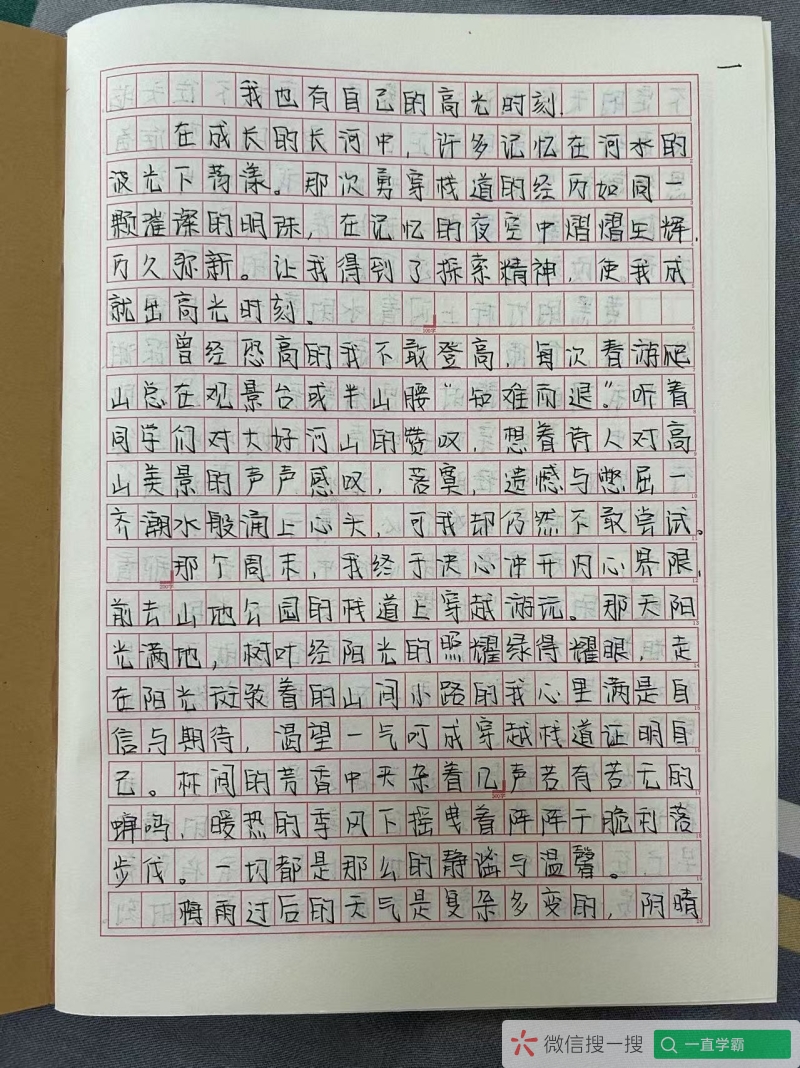 一
我也有自己的高光时刻.
在成长的长河中，许多记忆在河水的
波光下荡漾。那次勇穿栈道的经历如同一
颗璀璨的明珠，在记忆的夜空中熠熠生辉，
历久弥新。让我得到了探索精神，使我成
就出高光时刻.
曾经恐高的我不敢登高，每次春游爬
山总在观景台或半山腰“知难而退”。听着
同学们对大好河山的赞叹，想着诗人对高
山美景的声声感叹，落寞，遗憾与憋屈一
齐潮水般涌上心头，可我却仍然不敢尝试。
那个周末，我终于决心冲开内心界限，
前去山地公园的栈道上穿越游玩。那天阳
光满地，树叶经阳光的照耀绿得耀眼，走
在阳光斑驳着的山间小路的我心里满是自
信与期待，渴望一气呵成穿越栈道证明自
己。林间的芳香中夹杂着几声若有若无的
蝉鸣，暖热的季风下摇曳着阵阵干脆利落
步伐。一切都是那么的静谧与温馨。
梅雨过后的天气是复杂多变的，阴晴
微信搜一搜
一直学霸